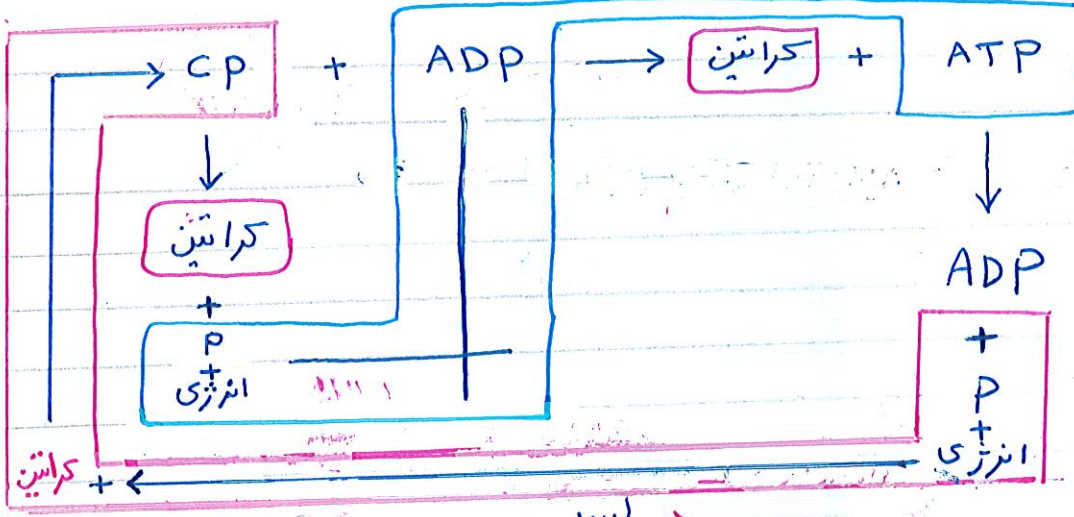 CP + ADP → کراتین + ATP
↓ ↓
کراتین
ADP
+ +
P
+
انرژی
P
+
انرژی
کراتین + ←